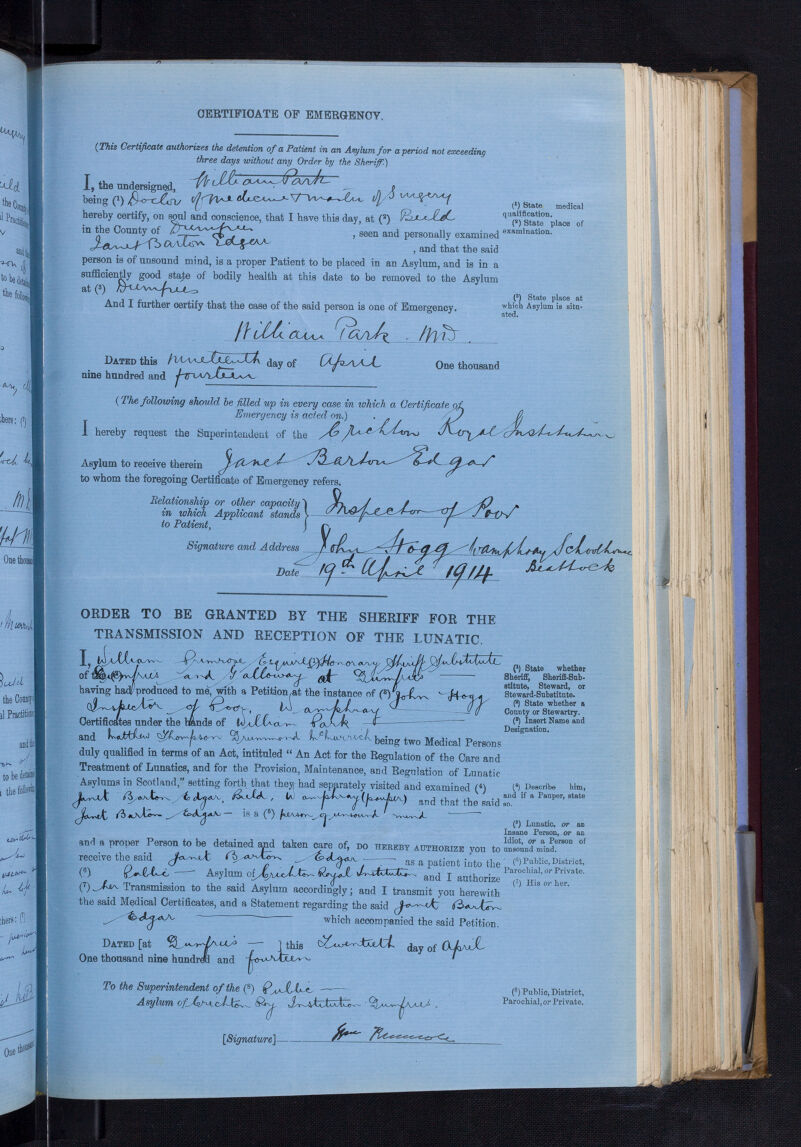 CERTIFICATE OF EMERGENCY.
(This Certificate authorizes the detention of a Patient in an Asylum for a period not exceeding
three days without any Order by the Sheriff.)
I, the undersigned, William Park
being (1) Doctor of Medicine & Master of Surgery
hereby certify, on soul and conscience, that I have this day, at (2) Beild
in the County of Dumfries
Janet Barton Edgar , seen and personally examined
, and that the said
person is of unsound mind, is a proper Patient to be placed in an Asylum, and is in a
sufficiently good state of bodily health at this date to be removed to the Asylum
at (3) Dumfries
And I further certify that the case of the said person is one of Emergency.
William Park . MD.
DATED this nineteenth day of April One thousand
nine hundred and fourteen
(1) State medical
qualification.
(2) State place of
examination.
(3) State place at
which Asylum is situ-
ated.
(The following should be filled up in every case in which a Certificate of
Emergency is acted on.)
I hereby request the Superintendent of the Crichton Royal Institution
Asylum to receive therein Janet Barton Edgar
to whom the foregoing Certificate of Emergency refers.
Relationship or other capacity
in which Applicant stands
to Patient, Inspector of Poor
Signature and Address John Hogg Wamphray Schoolhouse
Beattock
Date 19th April 1914
ORDER TO BE GRANTED BY THE SHERIFF FOR THE
TRANSMISSION AND RECEPTION OF THE LUNATIC.
I, William Primrose Esquire (1) Honorary Sheriff Substitute
of Dumfries and Galloway at Dumfries
having had produced to me, with a Petition at the instance of (3) John Hogg
Inspector of Poor, Wamphray
Certificates under the hands of William Park
and Matthew Thompson Drummond being two Medical Persons
duly qualified in terms of an Act, intituled "An Act for the Regulation of the Care and
Treatment of Lunatics, and for the Provision, Maintenance, and Regulation of Lunatic
Asylums in Scotland," setting forth that they had separately visited and examined (4)
Janet Barton Edgar, Beild, Wamphray (pauper) and that the said
Janet Barton Edgar — is a (5) person of unsound mind —
and a proper Person to be detained and taken care of, DO HEREBY AUTHORIZE you to
receive the said Janet Barton Edgar — as a patient into the
(6) Public — Asylum of Crichton Royal Institution and I authorize
(7) her Transmission to the said Asylum accordingly; and I transmit you herewith
the said Medical Certificates, and a Statement regarding the said Janet Barton
Edgar — which accompanied the said Petition.
DATED [at Dumfries — } this Twentieth day of April
One thousand nine hundred and fourteen
To the Superintendent of the (8) Public —
Asylum of Crichton Roy. Institution Dumfries.
[Signature] Wm Primrose
(1) State whether
Sheriff, Sheriff-Sub-
stitute, Steward, or
Steward-Substitute.
(2) State whether a
County or Stewartry.
(3) Insert Name and
Designation.
(4) Describe him,
and if a Pauper, state
so.
(5) Lunatic, or an
Insane Person, or an
Idiot, or a Person of
unsound mind.
(6) Public, District,
Parochial, or Private.
(7) His or her.
(8) Public, District,
Parochial, or Private.